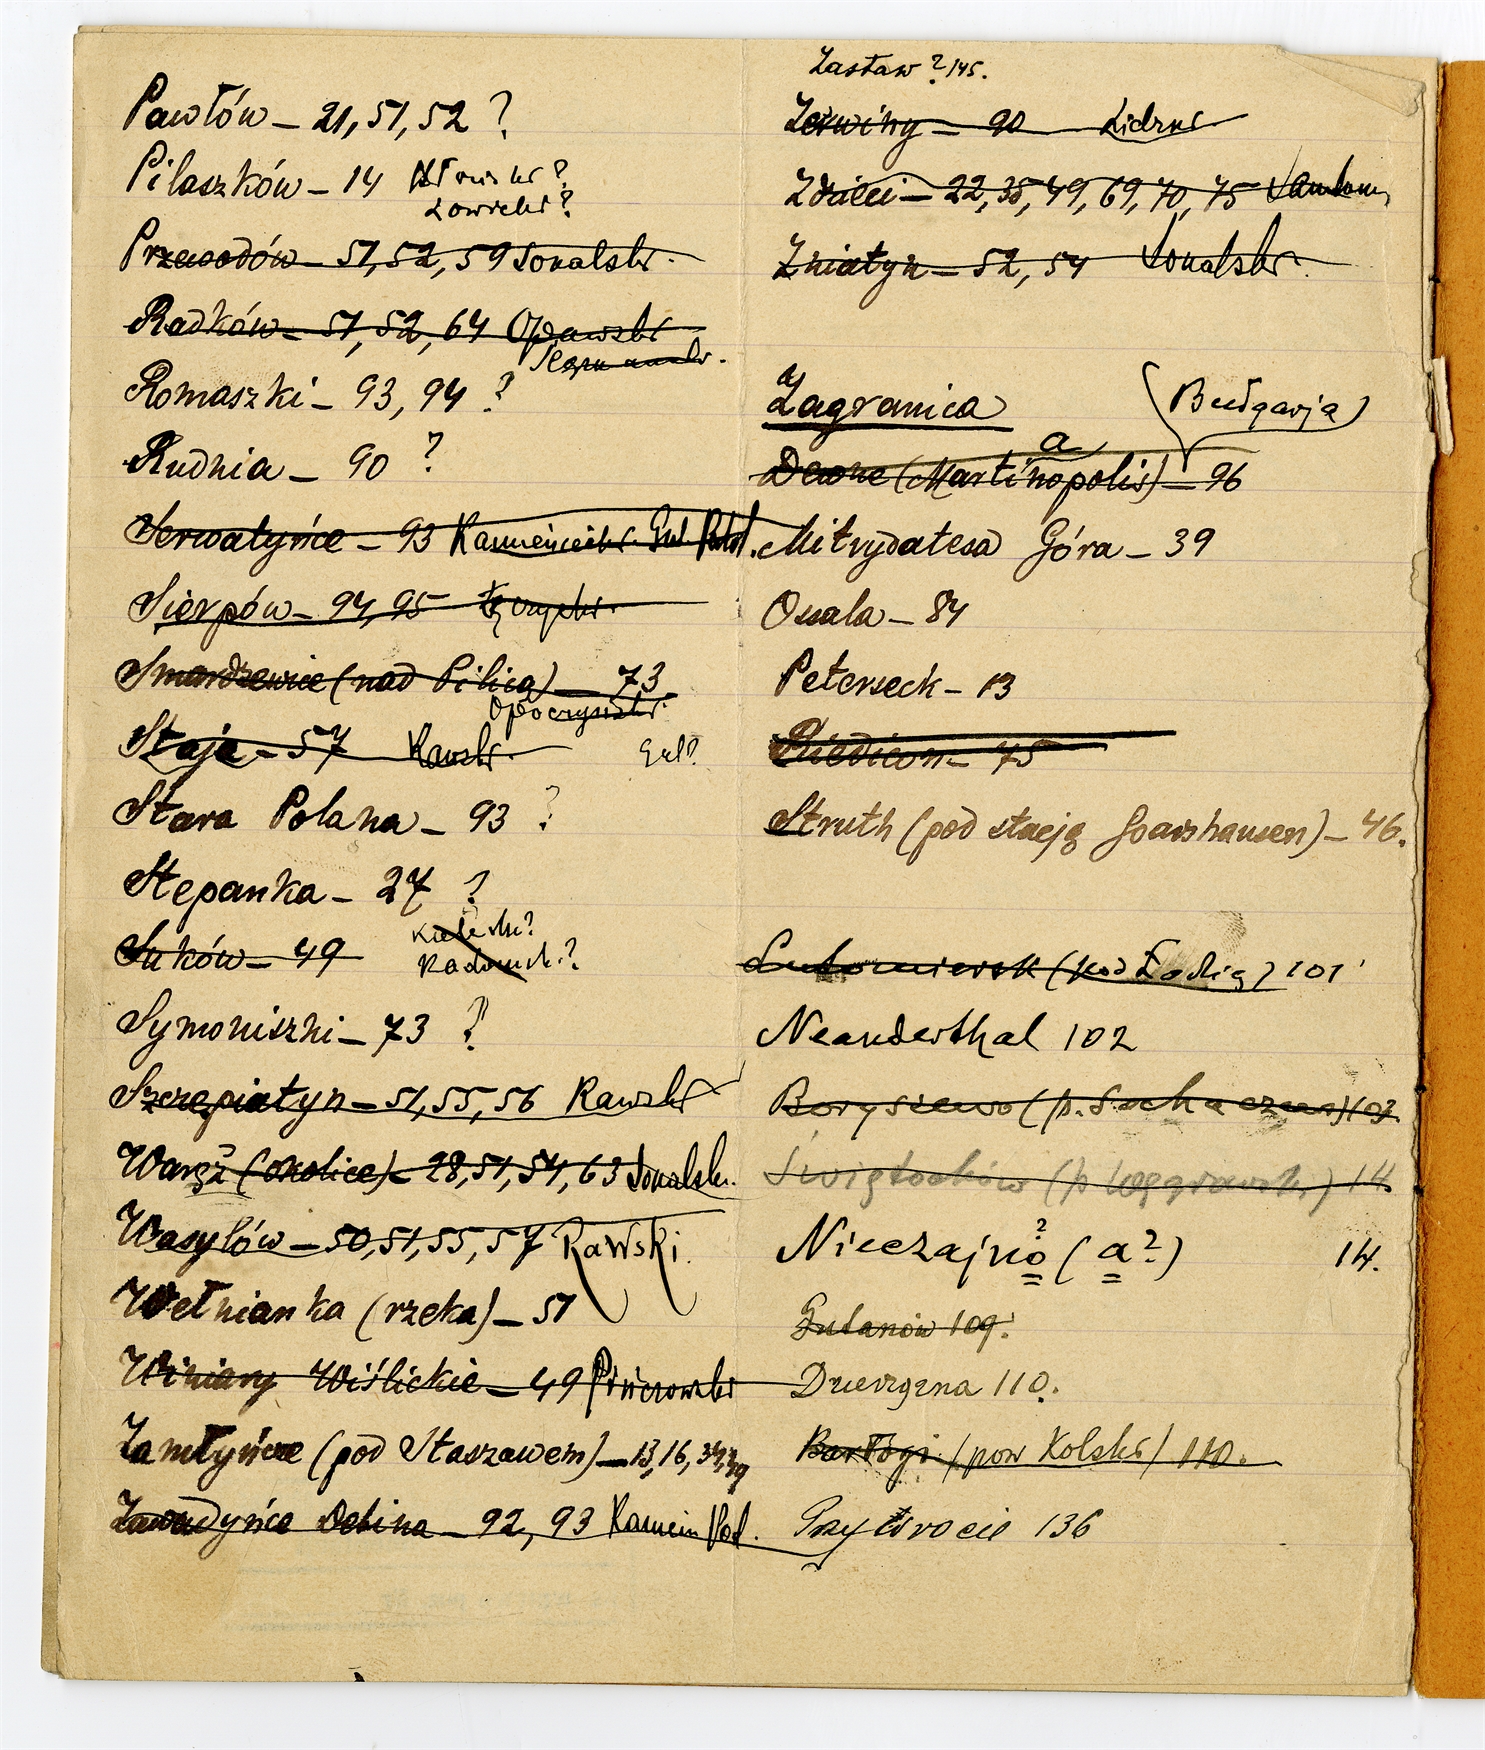 Pawłów – 21, 51, 52 ?
Pilaszków – 14
Łowicki?
Przewodów – 51, 52, 59 Sokalski.
Radków – 51, 52, 64 Opawski
Romaszki – 93, 94 ?
Rudnia – 90 ?
Serwatyńce – 93 Kamieniecki. Gub. Podol.
Sierpów – 94, 95 Łęczycki.
Smardzewice (nad Pilicą) – 73
Opoczyński.
Staje – 57 Rawski.
Stara Polana – 93 ?
Stepanka – 27 ?
Kielecki?
Suków – 49
Radomsk.?
Symoniszki – 73 ?
Szczepiatyn – 51, 55, 56 Rawski
Waręż (okolice) – 28, 51, 54, 63 Sokalsk.
Wasylów – 50, 51, 55, 57 Rawski.
Wełnianka (rzeka) – 51
Winiary Wiślickie – 49 Pińczowski
Zamłyńcze (pod Staszawem) – 13, 16, 34, 39
Zawadyńce Debina – 92, 93 Kamien Pod.
Zastaw ? 145.
Zerwiny – 90 Lidzki
Zdzieci – 22, 35, 49, 69, 70, 75 Sandom.
Żniatyn – 52, 54 Sokalski.
Zagranica (Bułgarja)
a
Dewne (Martinopolis) – 96
Mitrydatesa Góra – 39
Ossala – 84
Peterseck – 13
75
Struth (pod stacją Goarshausen) – 46.
Lutomiersk (pod Łodzią) 101
Neanderthal 102
Borysiewo (p. Sochaczew) 103.
Świętochów (p Węgrowsk.) 14.
Nieczajno? (a?) 14.
Gutanów 109.
Dzierzgzna 110.
Barłogi (pow Kolski) 110.
Przywrocie 136